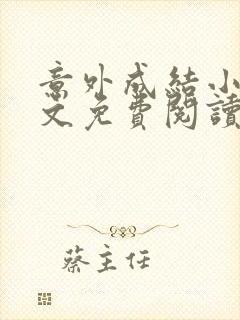 意外成結小
文免費閱讀
蔡主任